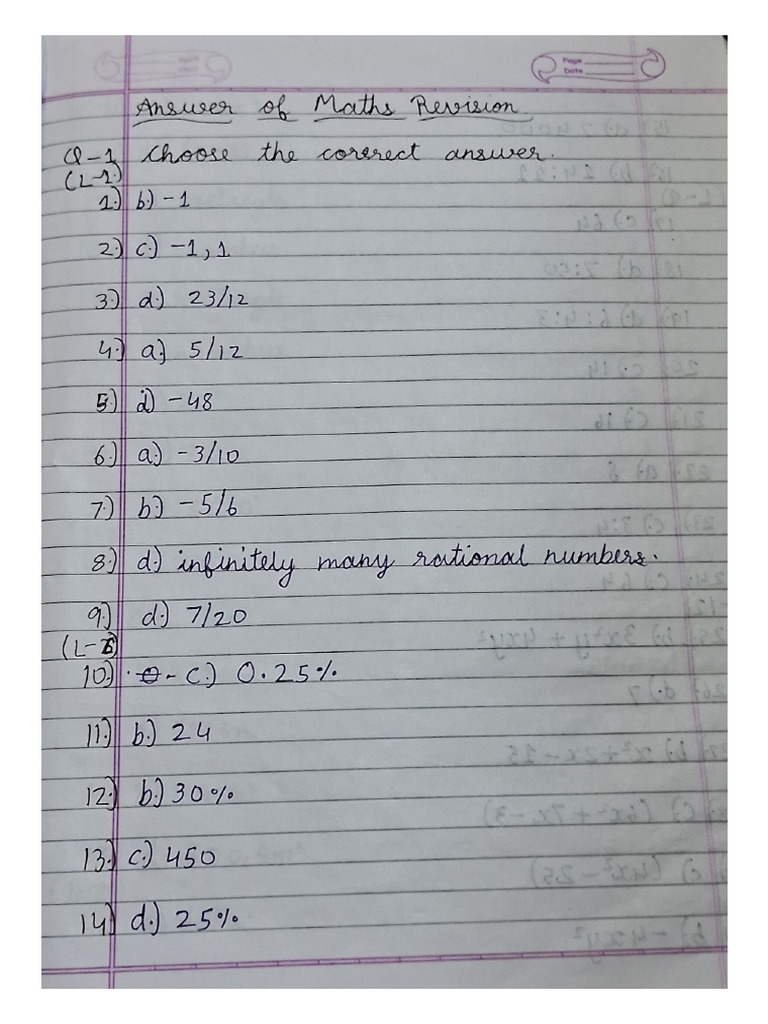 Page
Date
Answer of Maths Revision
Q-1 Choose the correct answer.
(L-1)
1.) b.) -1
2.) c.) -1, 1
3.) d.) 23/12
4.) a.) 5/12
5.) d) -48
6.) a.) -3/10
7.) b.) -5/6
8.) d.) infinitely many rational numbers.
9.) d.) 7/20
10.) c.) 0.25%
11.) b.) 24
12.) b.) 30%
13.) c.) 450
14.) d.) 25%